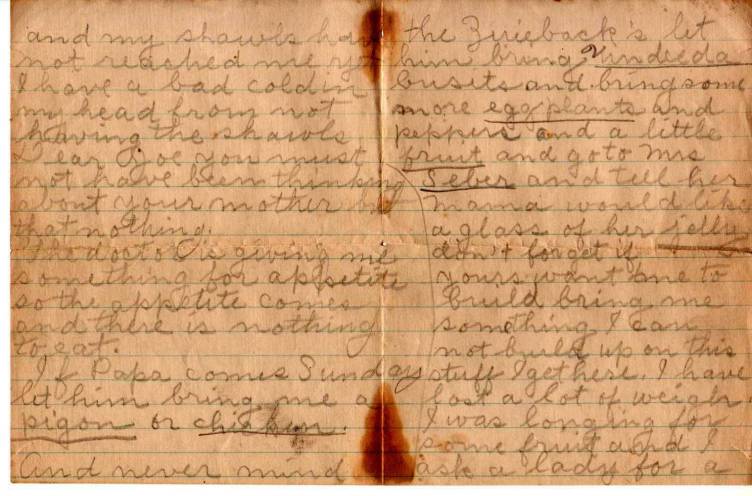 and my shawls have
not reached me yet
I have a bad cold in
my head from not
having the shawls
Dear Joe you must
not have been thinking
about your mother but
that nothing.
The doctor is giving me
something for appsetite
so the appetite comes
and there is nothing
to eat.
If Papa comes Sunday
let him bring me a
pigon or chicken.
And never mind
the Zirieback's let
him bring
busits and bring some
more egg plants and
peppers and a little
fruit and go to Mrs
Seber and tell her
mama would like
a glass of her jelly
don't forget if
yours want me to
build bring me
something I can
not build up on this
stuff I get here. I have
lost a lot of weight
I was longing for
some fruit and I
ask a lady for a